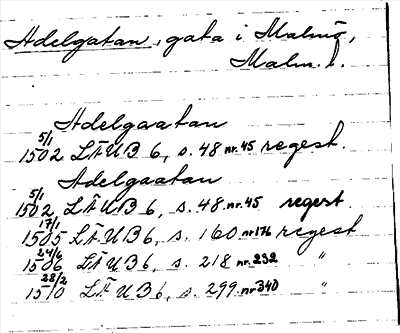 Adelgatan, gata i Malmö,
Malm. l.
Adelgaatan
1502 5/1 LÄUB 6, s. 48 nr. 45 regest.
Adelgaatan
1502 5/1 LÄUB 6, s. 48 nr. 45 regest
1505 17/1 LÄUB 6, s. 160 nr 176 regest
1506 24/6 LÄUB 6, s. 218 nr. 232 "
1510 28/2 LÄUB 6, s. 299 nr 340 "